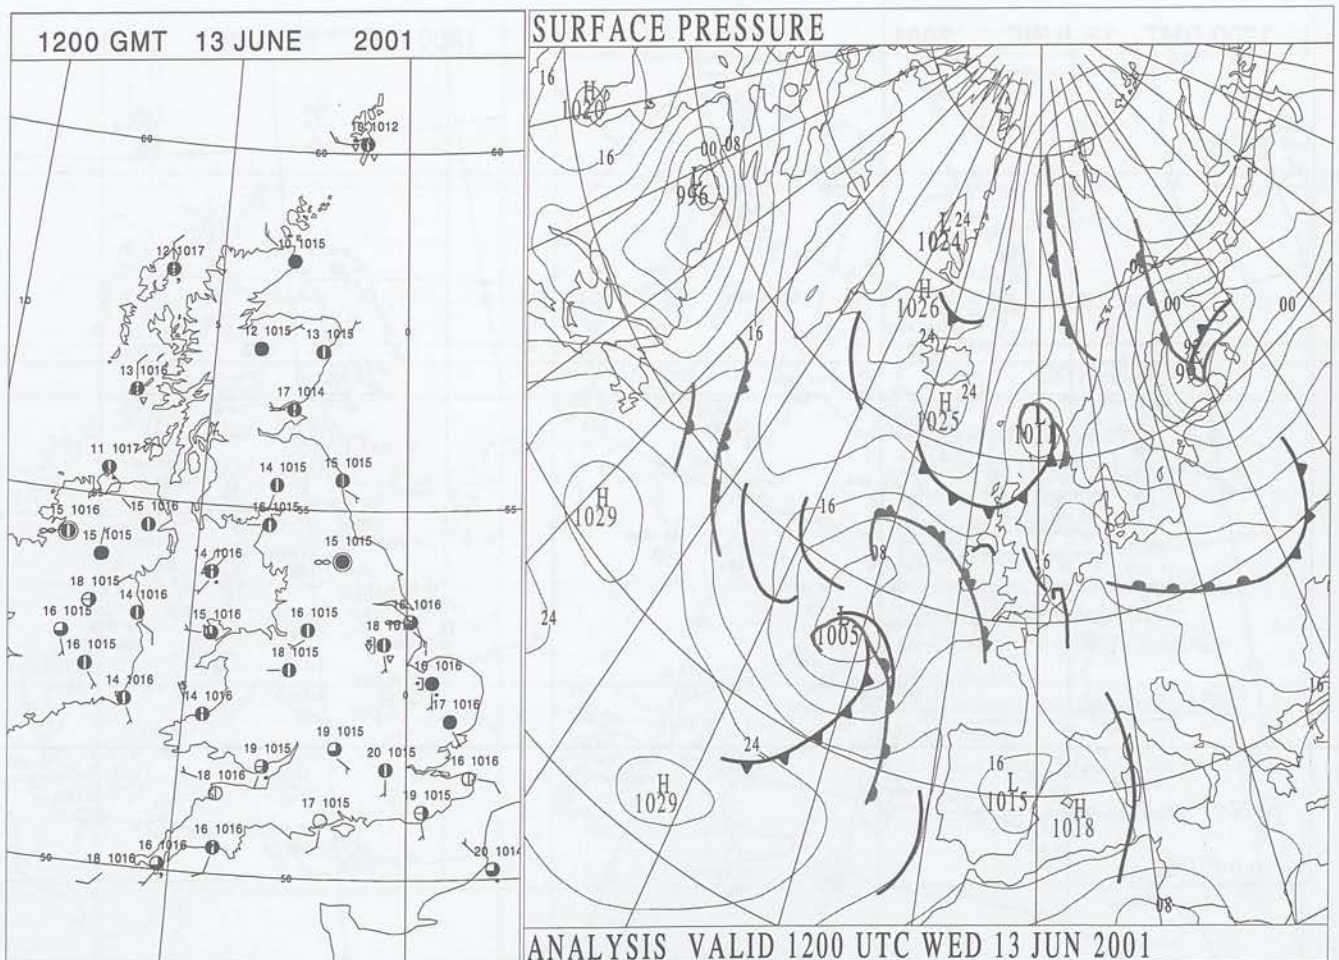 1200 GMT 13 JUNE 2001
60
60
60
10 1012
12 1017
10 1015
10
5
0
12 1015
13 1015
13 1016
17 1014
11 1017
14 1015
15 1015
55
55
55
15 1016
15 1016
16 1015
15 1015
15 1015
14 1016
18 1015
14 1016
16 1015
15 1016
16 1015
16 1016
18
16 1015
18 1015
16 1016
14 1016
14 1016
0
17 1016
19 1015
19 1015
20 1015
16 1016
18 1016
17 1015
19 1015
16 1016
16 1016
18 1016
20 1014
50
50
SURFACE PRESSURE
16
H
1020
16
00
08
L
996
L
24
1024
H
1026
24
08
00
00
16
24
H
1025
L
1011
H
1029
16
08
24
L
1005
16
24
H
1029
16
L
1015
H
1018
08
ANALYSIS VALID 1200 UTC WED 13 JUN 2001